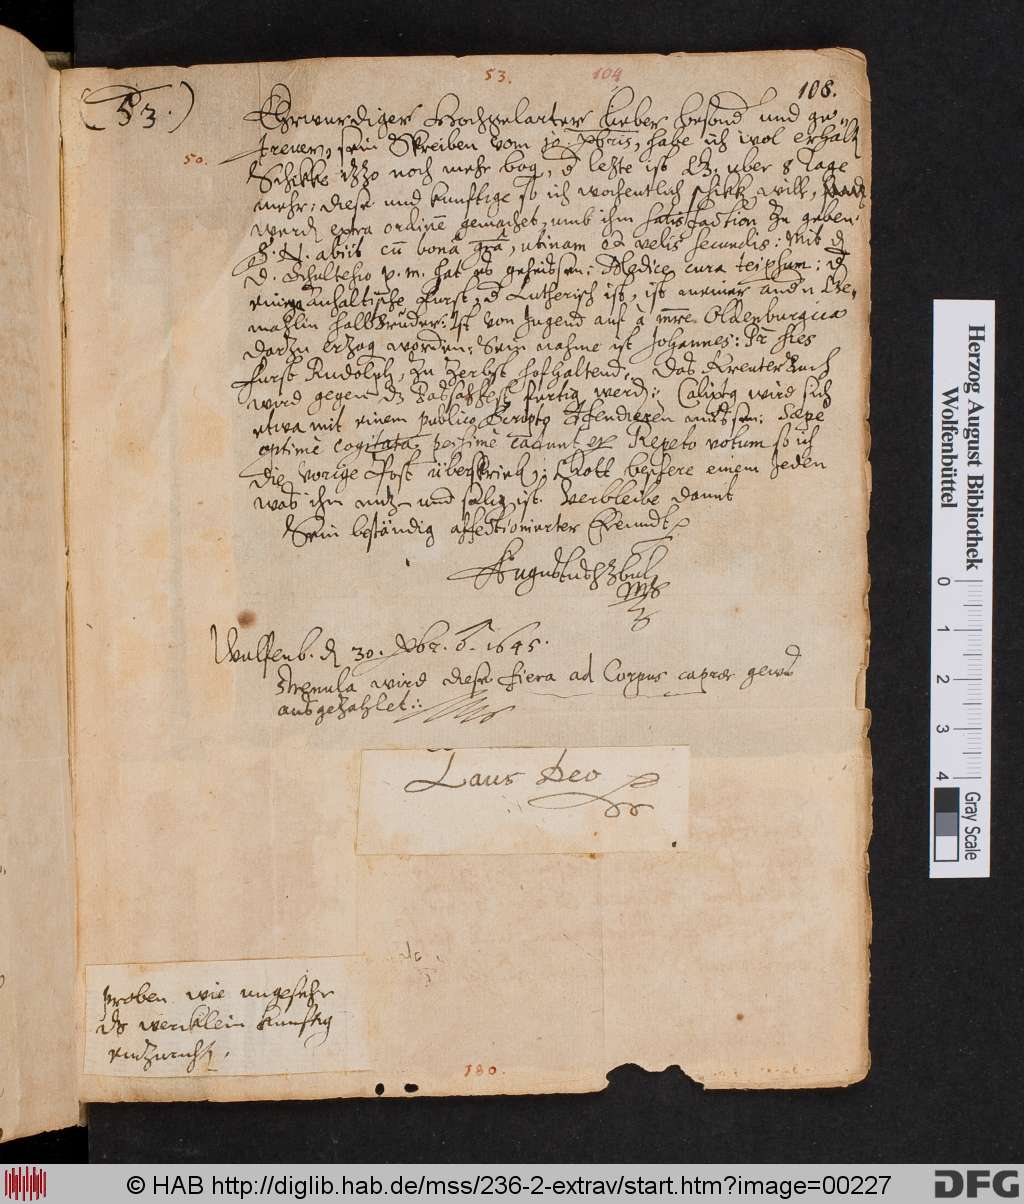 53. 104
108.
(53.)
Ehrwurdiger Hochgelarter lieber besond und ge-
trewer, sein Skreiben vom 10. Xbris, habe ich wol erhalt
50.
Schikke izzo noch mehr bog, d letzte ist uber 8 Tage
mehr: diese und kunftige so ich wochentlich schikk will,
werd extra ordinē gemachet, umb ihm satisfaction zu geben.
abiit cū bonâ grâ, utinam & velis secundis: Mit d
d. Schultesio p. m. hat es geheissen: Medice cura teipsum: d
Anhaltische Furst, d Lutherisch ist, ist meiner andn Ge-
mahlin halbbruder: Ist von Jugend auf à mre Oldenburgica
darzu erzog worden: Sein nahme ist Johannes: Pr
Furst Rudolph, zu Zerbst hofhaltend. Das Kreuter Buch
wird gegen fertig werd: Calixtg wird sich
etwa mit einem publico scripto defendieren mussen: Sæpe
optimè cogitata, pessimè cadunt Repeto votum so ich
die vorige Post überskrieb: Gott beschere einem Jeden
was ihm nutz und selig ist. Verbleibe damit
Sein beständig affectionirter Freundt
Augustus HZBuL
Wulfenb. d 30. Xbr. 1645.
wird diese fiera ad Corpus gewis
ausgezahlet:
Laus Deo
Proben wie ungefehr
ds wercklein kunftig
einzuricht.
180.
Herzog August Bibliothek
Wolfenbüttel
0 1 2 3 4
Gray Scale
© HAB http://diglib.hab.de/mss/236-2-extrav/start.htm?image=00227
DFG